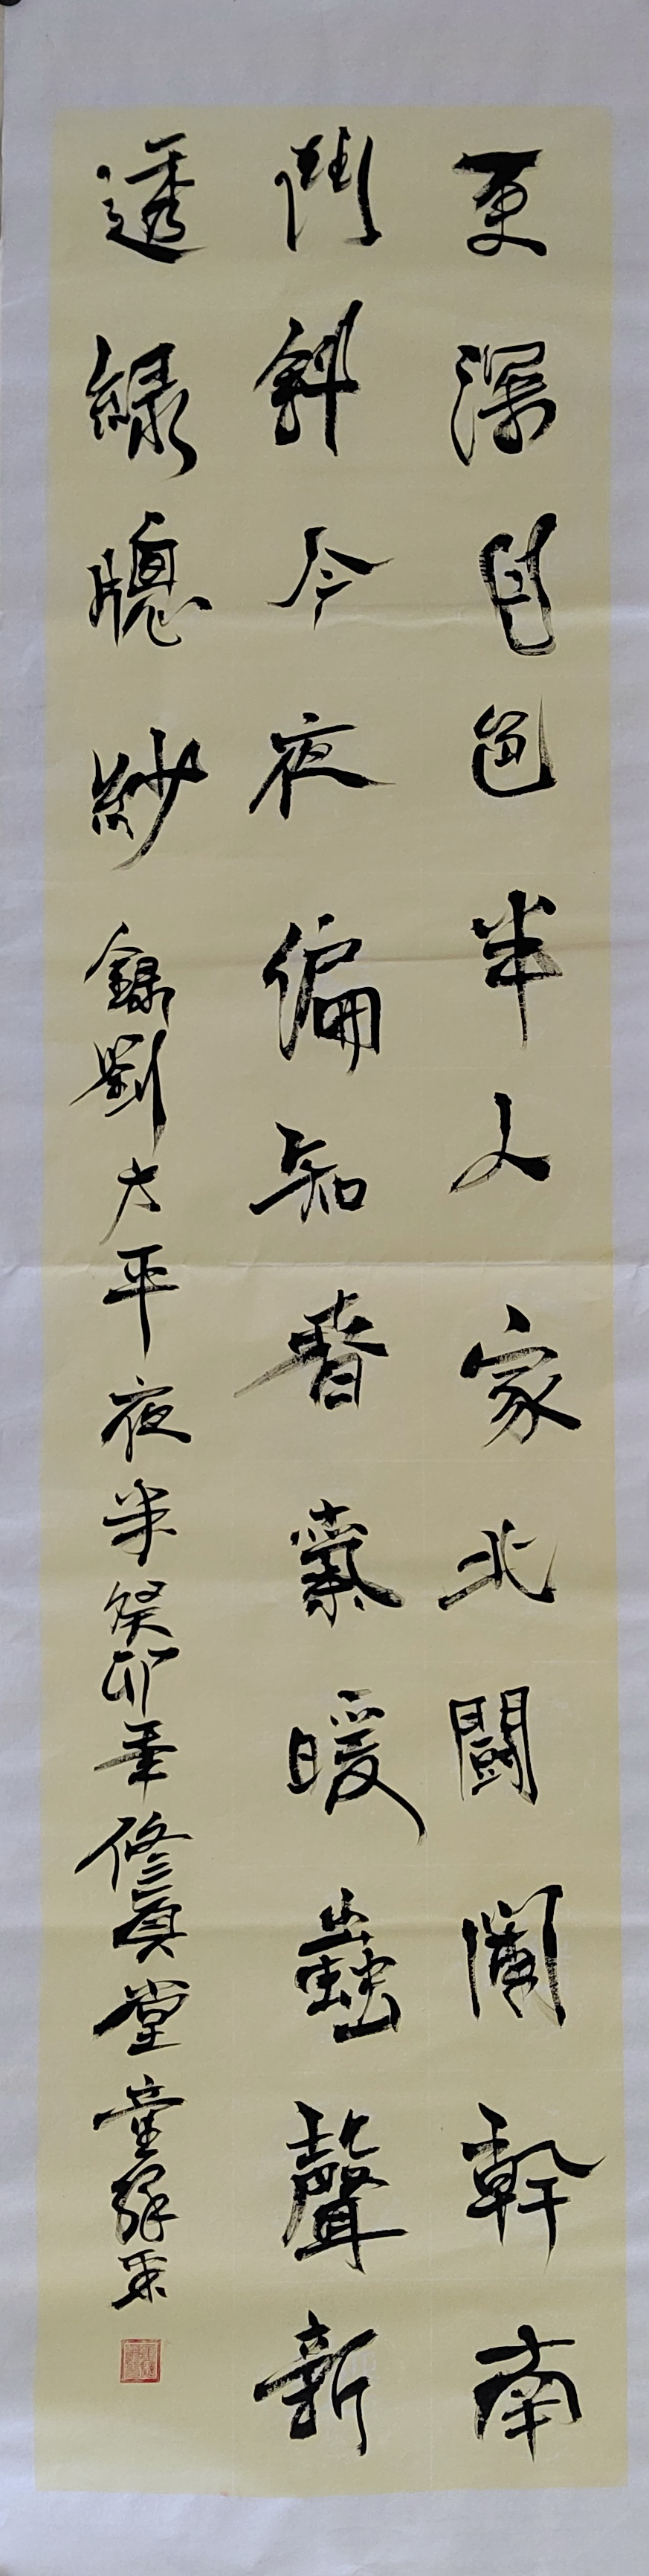 更深月色半人家北鬭闌幹南
鬥斜今夜偏知春氣暖蟲聲新
透綠牕紗錄劉方平夜半癸卯年修真堂童